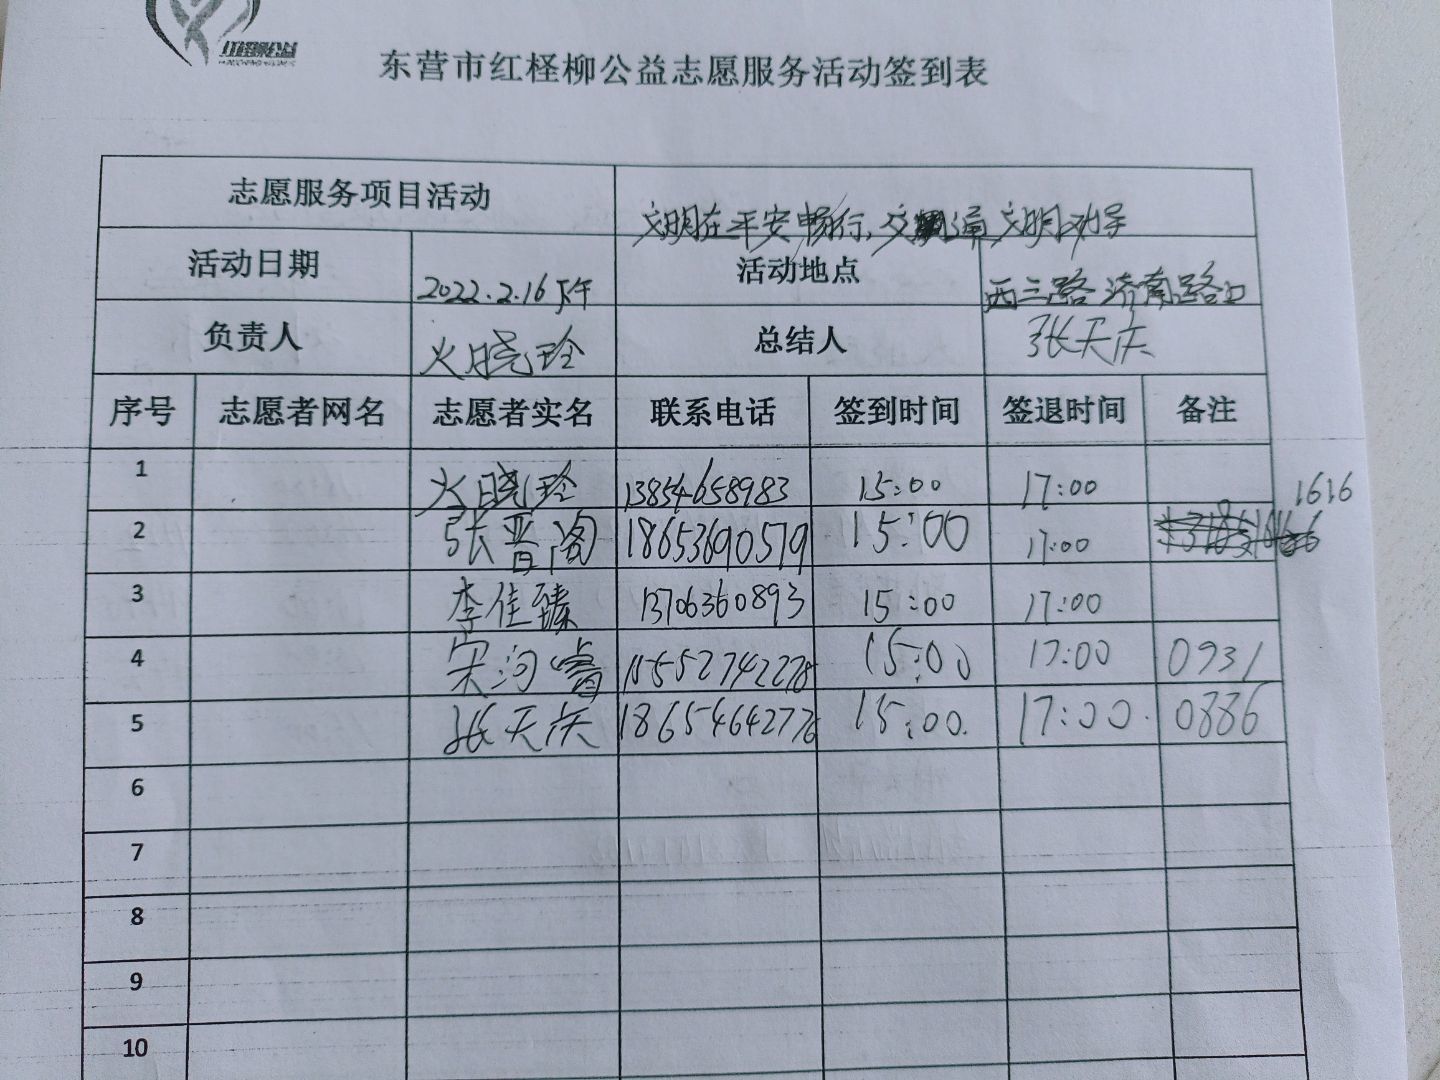 红柽柳公益
东营市红柽柳公益志愿服务活动签到表
志愿服务项目活动 文明在平安畅行，交通文明劝导
活动日期 2022.2.16下午 活动地点 西三路济南路口
负责人 火晓玲 总结人 张天庆
序号 志愿者网名 志愿者实名 联系电话 签到时间 签退时间 备注
1 火晓玲 13854658983 15:00 17:00
1616
2 张晋阁 18653690579 15:00 17:00
3 李佳臻 13706360893 15:00 17:00
4 宋沟睿 15552742278 15:00 17:00 0931
5 张天庆 18654642776 15:00. 17:00. 0886
6
7
8
9
10